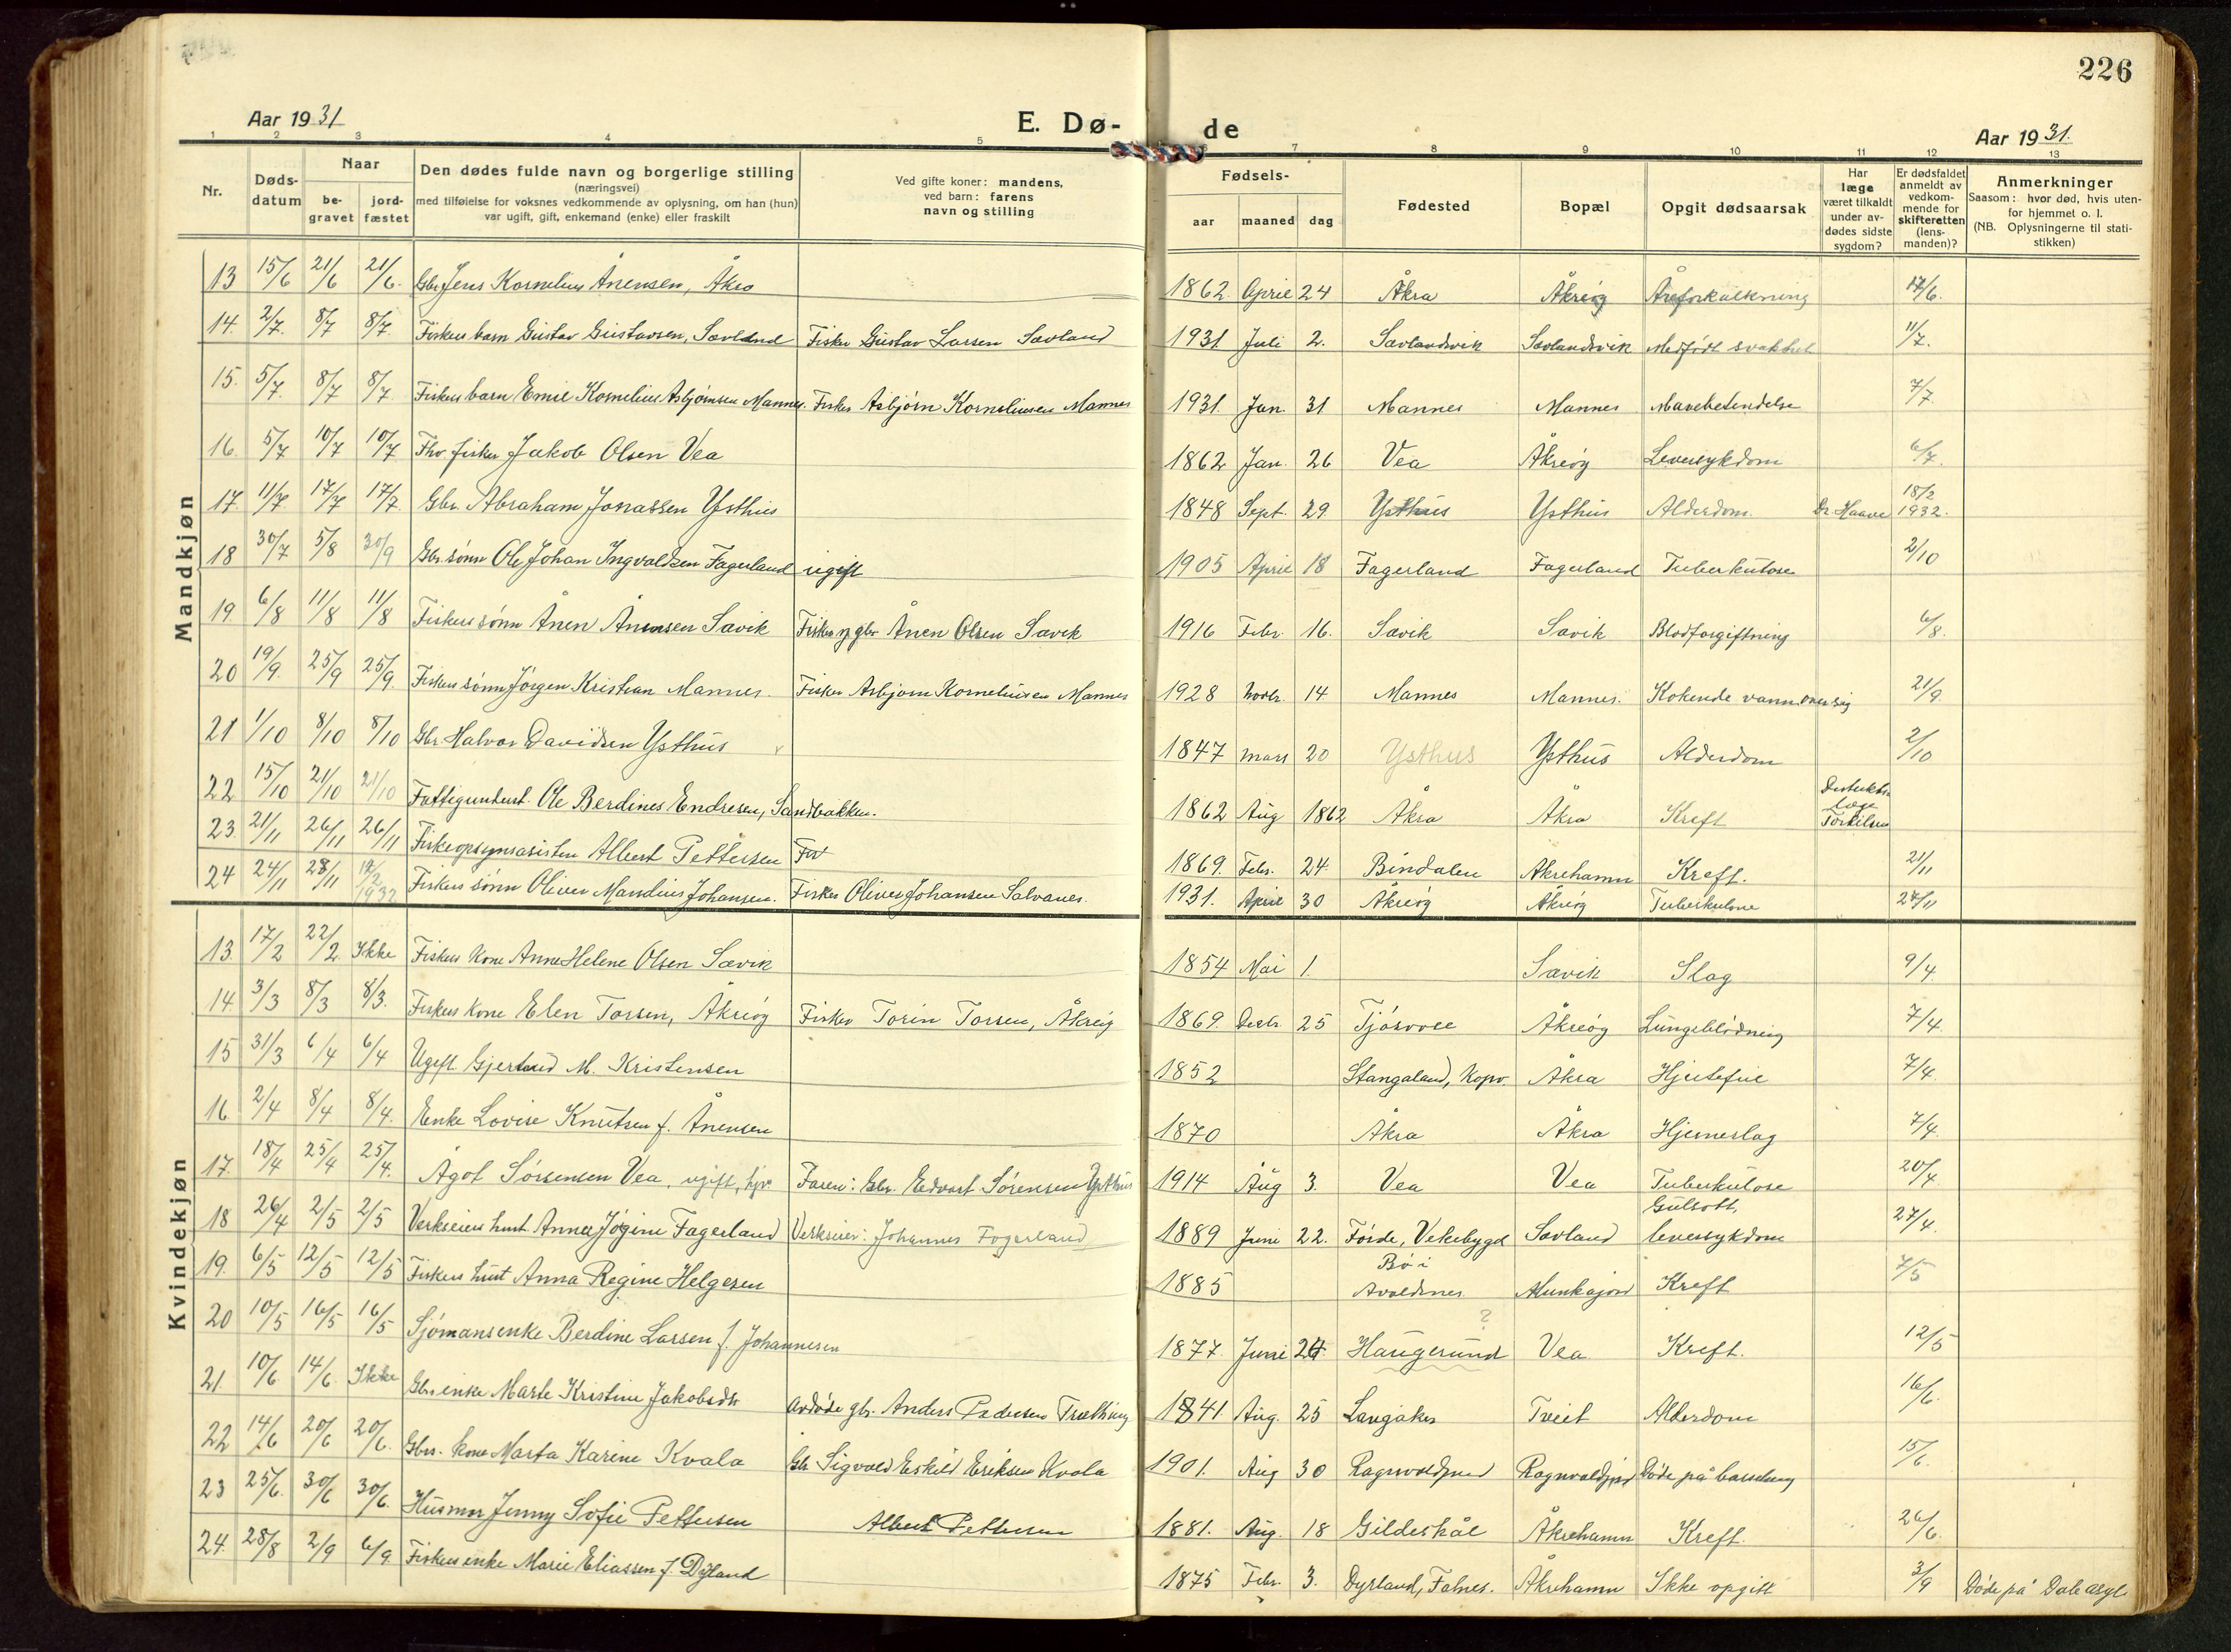 226
Aar 1931
E. Dø-
de
Aar 1931.
1 2 3 4 5 6 7 8 9 10 11 12 13
Nr.
Døds-
datum
Naar
be-
gravet
jord-
fæstet
Den dødes fulde navn og borgerlige stilling
(næringsvei)
med tilføielse for voksnes vedkommende av oplysning, om han (hun)
var ugift, gift, enkemand (enke) eller fraskilt
Ved gifte koner: mandens,
ved barn: farens
navn og stilling
Fødsels-
aar maaned dag
Fødested
Bopæl
Opgit dødsaarsak
Har
læge
været tilkaldt
under av-
dødes sidste
sygdom?
Er dødsfaldet
anmeldt av
vedkom-
mende for
skifteretten
(lens-
manden)?
Anmerkninger
Saasom: hvor død, hvis uten-
for hjemmet o. l.
(NB. Oplysningerne til stati-
stikken)
Mandkjøn
13 15/6 21/6 21/6. Gbr. Jens Kornelius Ånensen, Åkra 1862. April 24 Åkra Åkreøg Åreforkalkning 17/6.
14. 2/7. 8/7 8/7. Fiskers barn Gustav Gustavsen, Sævland Fisker Gustav Larsen Sævland 1931. Juli 2. Sævlandsvik Sævlandsvik Medfødt svakhet 11/7.
15. 5/7. 8/7 8/7. Fiskers barn Emil Kornelius Asbjørnsen Mannes. Fisker Asbjørn Korneliusen Mannes 1931. Jan. 31 Mannes Mannes Mavebetendelse 7/7
16. 5/7 10/7 10/7 Fhv. fisker Jakob Olsen Vea 1862 Jan. 26 Vea Åkreøg Leversykdom 6/7.
17. 11/7 17/7 17/7. Gbr. Abraham Jonassen Ysthus 1848 Sept. 29 Ysthus Ysthus Alderdom. Dr. Haave 18/2 1932.
18 30/7 5/8 30/9 Gbr. sønn Ole Johan Ingvaldsen Fagerland ugift 1905 April 18 Fagerland Fagerland Tuberkulose 2/10
19. 6/8 11/8 11/8 Fiskers sønn Ånen Ånensen Sævik Fisker og gbr. Ånen Olsen Sævik 1916 Febr. 16. Sævik Sævik Blodforgiftning 6/8.
20 19/9. 25/9 25/9. Fiskers sønn Jørgen Kristian Mannes. Fisker Asbjørn Korneliusen Mannes 1928 Novbr. 14 Mannes Mannes. Kokende vann over sig 21/9.
21 1/10 8/10 8/10 Gbr. Halvor Davidsen Ysthus 1847 Mars 20 Ysthus Ysthus Alderdom 2/10
22 15/10 21/10 21/10 Fattigunderst. Ole Berdines Endresen, Sandbakken. 1862 Aug 1862 Åkra Åkra Kreft Distriktslæge Torkilsen
23. 21/11 26/11 26/11 Fiskeopsynsasistent Albert Pettersen 1869. Febr. 24. Bindalen Åkrehamn Kreft. 21/11
24 24/11 28/11 17/2 1932 Fiskers sønn Oliver Mandius Johansen. Fisker Oliver Johansen Salvanes. 1931. April 30 Åkreøg Åkreøg Tuberkulose 24/11
Kvindekjøn
13. 17/2 22/2. Ikke Fiskers kone Anne Helene Olsen Sævik 1854 Mai 1. Sævik Slag 9/4.
14. 3/3 8/3 8/3. Fiskers kone Elen Torsen, Åkreøg Fisker Torin Torsen, Åkreøg 1869. Decbr. 25 Tjøsvoll Åkreøg Lungeblødning 7/4.
15 31/3 6/4 6/4 Ugift. Gjertrud M. Kristensen 1852 Stangaland, Kopv. Åkra Hjertefeil 7/4.
16 2/4 8/4 8/4. Enke Lovise Knutsen f. Ånensen 1870 Åkra Åkra Hjerneslag 7/4.
17. 18/4 25/4 25/4. Ågot Sørensen Vea, ugift, hjv. Faren: Gbr. Edvart Sørensen Ysthus 1914 Aug 3. Vea Vea Tuberkulose 20/4
18 26/4 2/5 2/5 Verkseiers hust. Anna Jøgine Fagerland Verkseier: Johannes Fagerland 1889 Juni 22. Førde, Vikebygd Sævland Gulsott, leversykdom 27/4.
19. 6/5 12/5 12/5 Fiskers hust Anna Regine Helgesen 1885 Bø i Avaldsnes Munkajord Kreft 7/5
20 10/5 16/5 16/5 Sjømansenke Berdine Larsen f. Johannesen 1877. Juni 24. Haugesund ? Vea Kreft. 12/5
21. 10/6 14/6 Ikke Gbr. enke Marte Kristine Jakobsdtr avdøde gbr. Anders Pedersen 1841. Aug. 25 Langåker Tveit Alderdom 16/6.
22 14/6 20/6 20/6. Gbrs. kone Marta Karine Kvala Gbr Sigvald Eskild Eriksen Kvala 1901. Aug 30 Ragnvaldjord Ragnvaldjord Døde på barselseng 15/6.
23 25/6. 30/6 30/6. Husmor Jenny Sofie Pettersen Albert Pettersen 1881. Aug. 18 Gildeskål Åkrehamn Kreft. 26/6.
24. 28/8 2/9 6/9. Fiskers enke Marie Eliassen f. Dyrland 1875 Febr. 3. Dyrland, Falnes. Åkrehamn Ikke opgitt 3/9 Døde på Dale asyl.